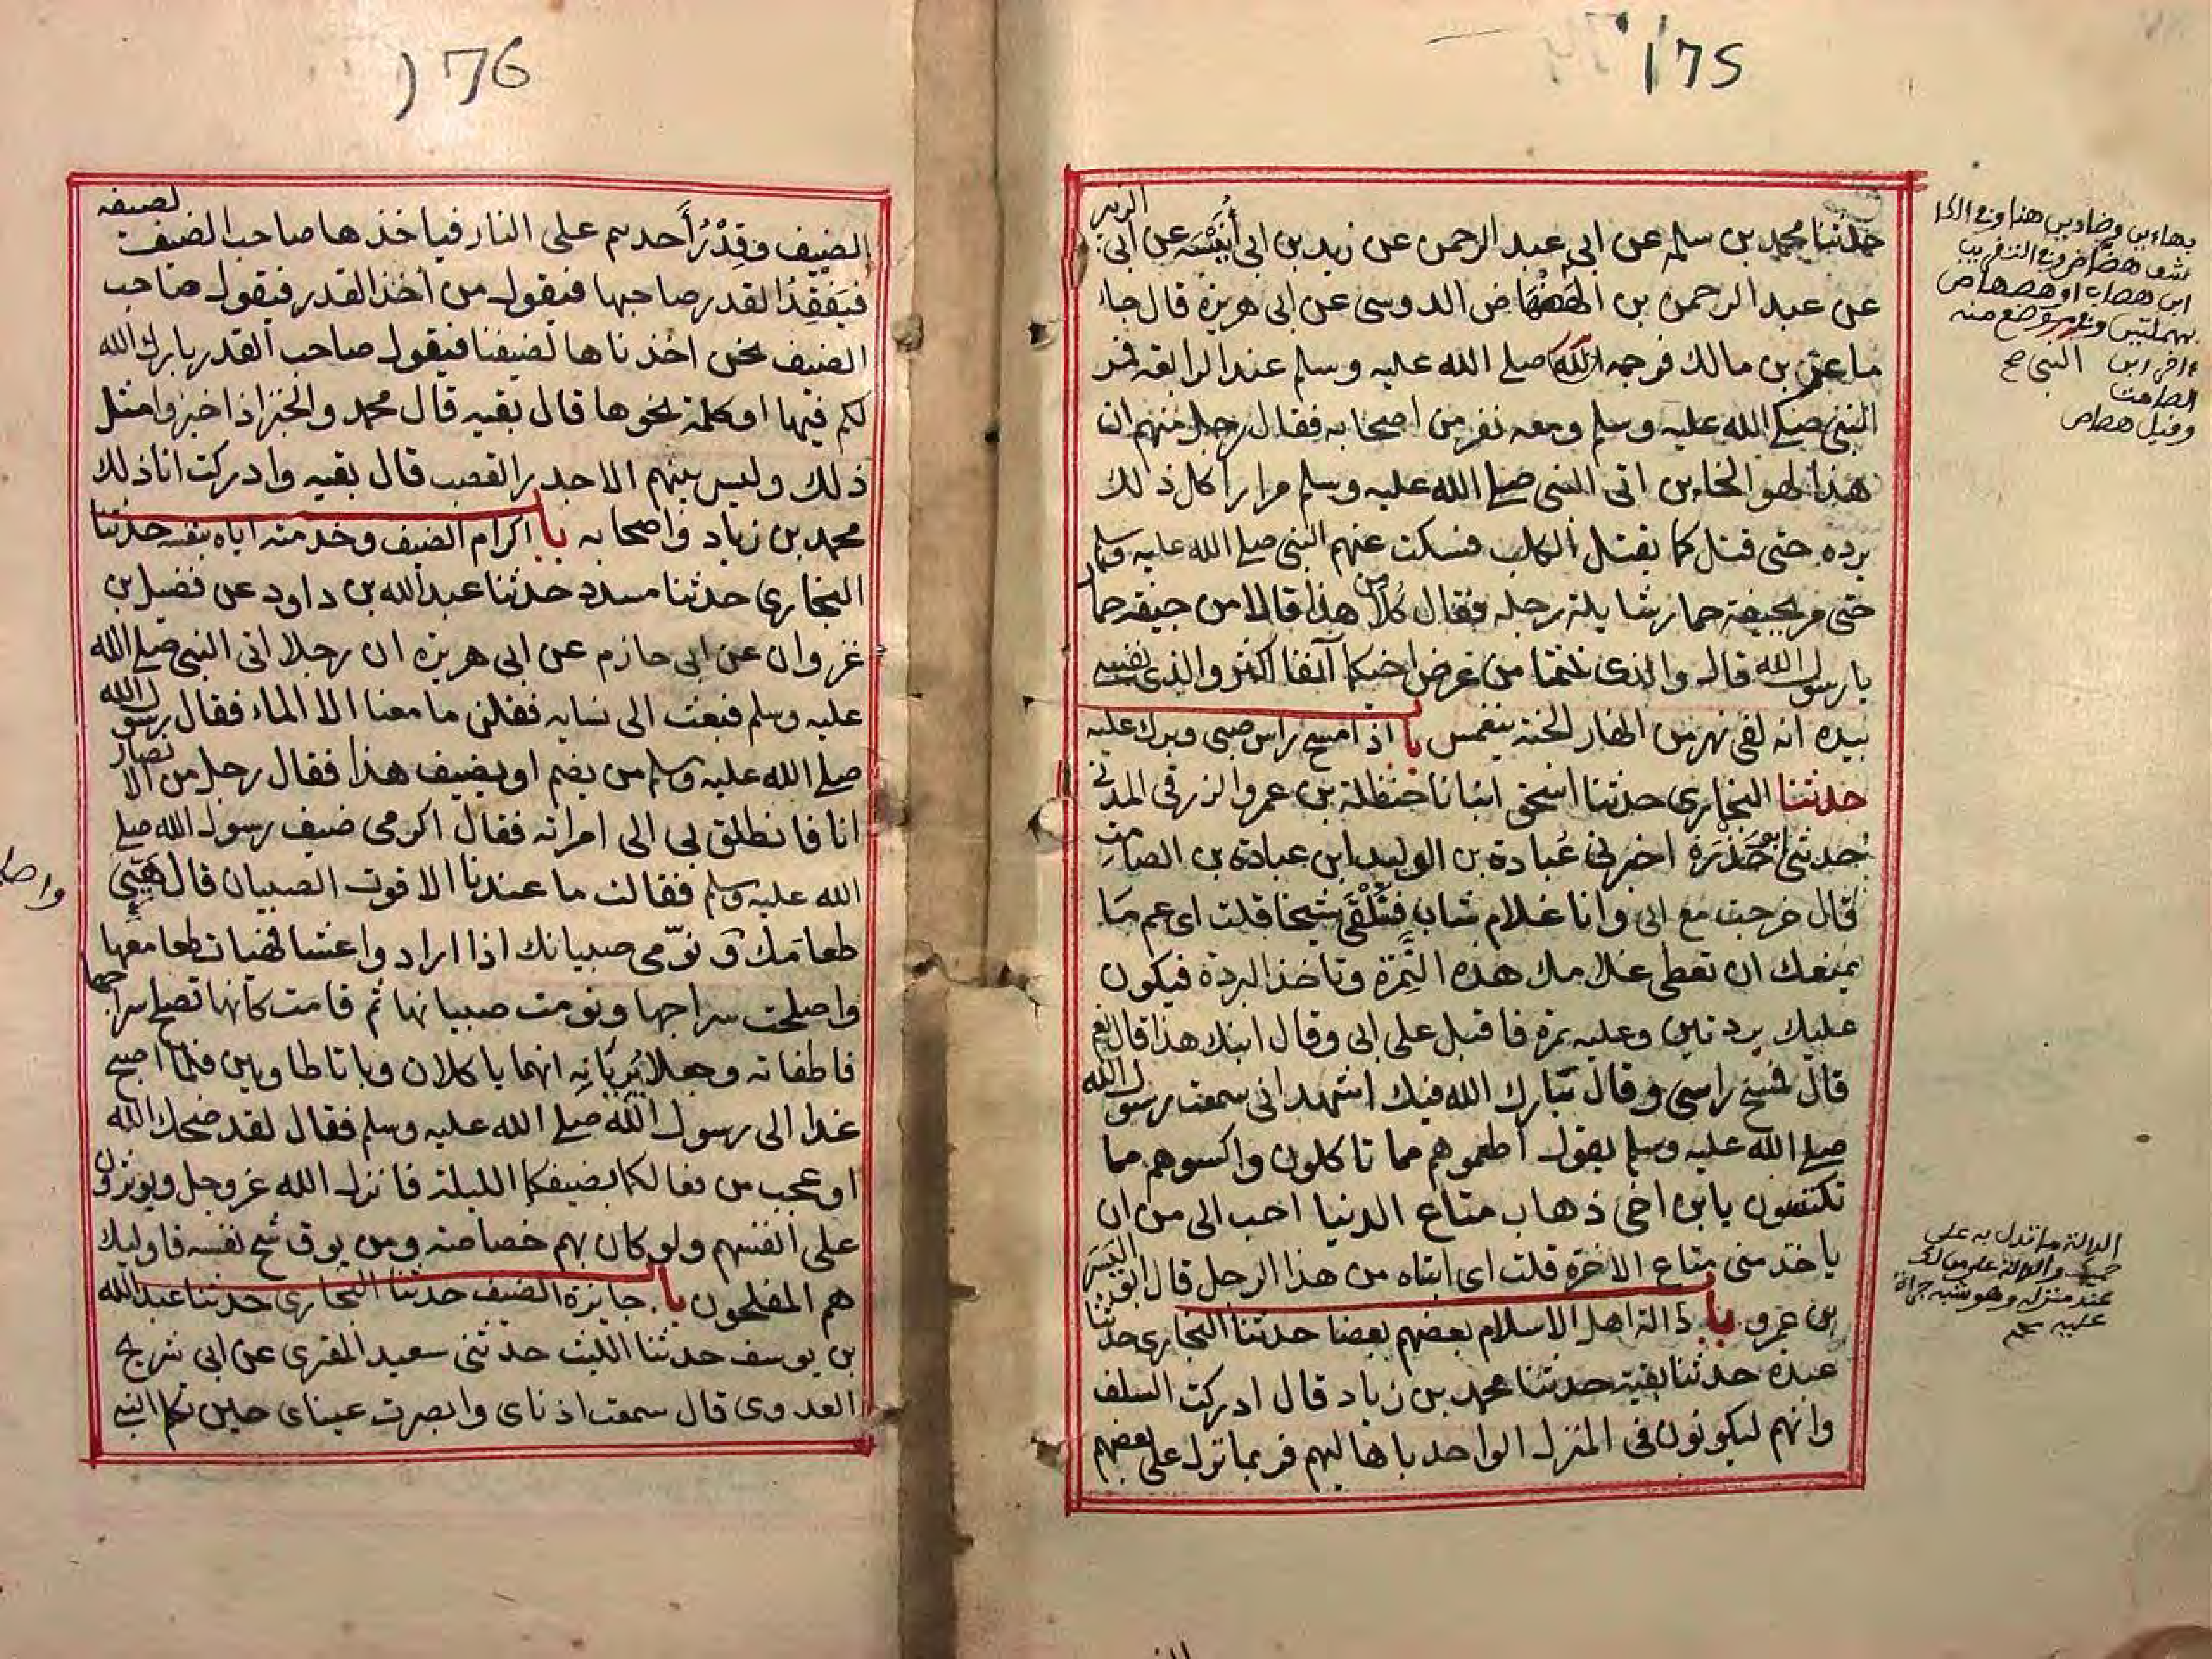 175
حدثنا محمد بن سلمه عن ابي عبد الرحمن عن زيد بن ابي أُنَيْسَه عن ابي الزبير
عن عبد الرحمن بن الهضهاض الدوسي عن ابي هريرة قال جاء
ماعز بن مالك فرجمه النبي صلى الله عليه وسلم عند الرابعه فمر
النبي صلى الله عليه وسلم ومعه نفر من اصحابه فقال رجل منهم ان
هذا لهو الخاين اتى النبي صلى الله عليه وسلم مرارا كل ذلك
يرده حتى قتل كما يقتل الكلب فسكت عنهم النبي صلى الله عليه وسلم
حتى مر بجيفة حمار شايلة رجله فقال كُلا من هذا قالا من جيفة حمار
يا رسول الله قال والذى نلتما من عرض اخيكما آنفا اكثر والذى نفسي
بيده انه لفى نهر من انهار الجنة ينغمس با اذا مسح راس صبي وبرك عليه
حدثنا البخارى حدثنا اسحق انبانا حنظلة بن عمرو الزرقى المدني
حدثنى ابو حَزْرَة اخبرنى عُبادة بن الوليد ابن عبادة بن الصامت
قال خرجت مع ابى وانا غلام شاب فنَلْقَى شيخا قلت اى عم مَا
يمنعك ان تعطى غلامك هذه النَّمِرَة وتاخذ البردة فيكون
عليك بردتين وعليه نمرة فاقبل على ابى وقال ابنك هذا قال نعم
قال فمسح راسي وقال بَارك الله فيك اشهد انى سمعت رسول الله
صلى الله عليه وسلم يقول اطعموهم مما تاكلون واكسوهم مما
تكتسون يابن اخى ذهاب متاع الدنيا احب الى من ان
ياخذ منى متاع الاخرة قلت اى ابتاه من هذا الرجل قال ابو اليَسَر
بن عمرو با دالة اهل الاسلام بعضهم بعضا حدثنا البخارى حدثنا
عبدة حدثنا بقية حدثنا محمد بن زياد قال ادركت السلف
وانهم ليكونون فى المنزل الواحد باهاليهم فربما نزل على بعضهم
بهاءين وضادين هنا وفى
ابن هضاب او هصهاص
بهملتين
الصامت
وقيل هصاص
الدالة ما تدل به على
حميمك
عند منزله وهو شبه جراة
عليه
176
الضيف وقِدْرُ أَحدهم على النار فياخذها صاحب الضيف لضيفه
فيَفقِدُ القدر صاحبها فيقول من أخذ القدر فيقول صاحب
الضيف نحن اخذناها لضيفنا فيقول صاحب القدر بارك الله
لكم فيها او كلمة نحوها قال بقيه قال محمد والخبز اذا خبزوا مثل
ذلك وليس بينهم الا جدر القصب قال بقيه وادركت انا ذلك
محمد بن زياد واصحابه با اكرام الضيف وخدمته اياه بنفسه حدثنا
البخارى حدثنا مسدد حدثنا عبد الله بن داود عن فضيل بن
غزوان عن ابى حازم عن ابى هريرة ان رجلا اتى النبى صلى الله
عليه وسلم فبعث الى نسايه فقلن ما معنا الا الماء فقال رسول الله
صلى الله عليه وسلم من يضم او يضيف هذا فقال رجل من الانصار
انا فانطلق بى الى امراته فقال اكرمى ضيف رسول الله صلى
الله عليه وسلم فقالت ما عندنا الا قوت الصبيان قال هَيِّئِي
طعامَك وَ نوّمى صبيانك اذا اراد واعشا فهيات طعامها
واصلحت سراجها ونومت صبيانها ثم قامت كانها تصلح سراجها
فاطفاته وجعلا يُرِيَانِه انهما ياكلان وباتا طاويين فلما اصبح
غدا الى رسول الله صلى الله عليه وسلم فقال لقد ضحك الله
او عجب من فعالكما بضيفكما الليلة فانزل الله عز وجل ويوثرون
على انفسهم ولو كان بهم خصاصة ومن يوق شح نفسه فاوليك
هم المفلحون با جايزة الضيف حدثنا البخارى حدثنا عبد الله
بن يوسف حدثنا الليث حدثنى سعيد المقبرى عن ابى شريح
العدوى قال سمعت اذناى وابصرت عيناى حين تكلم النبي